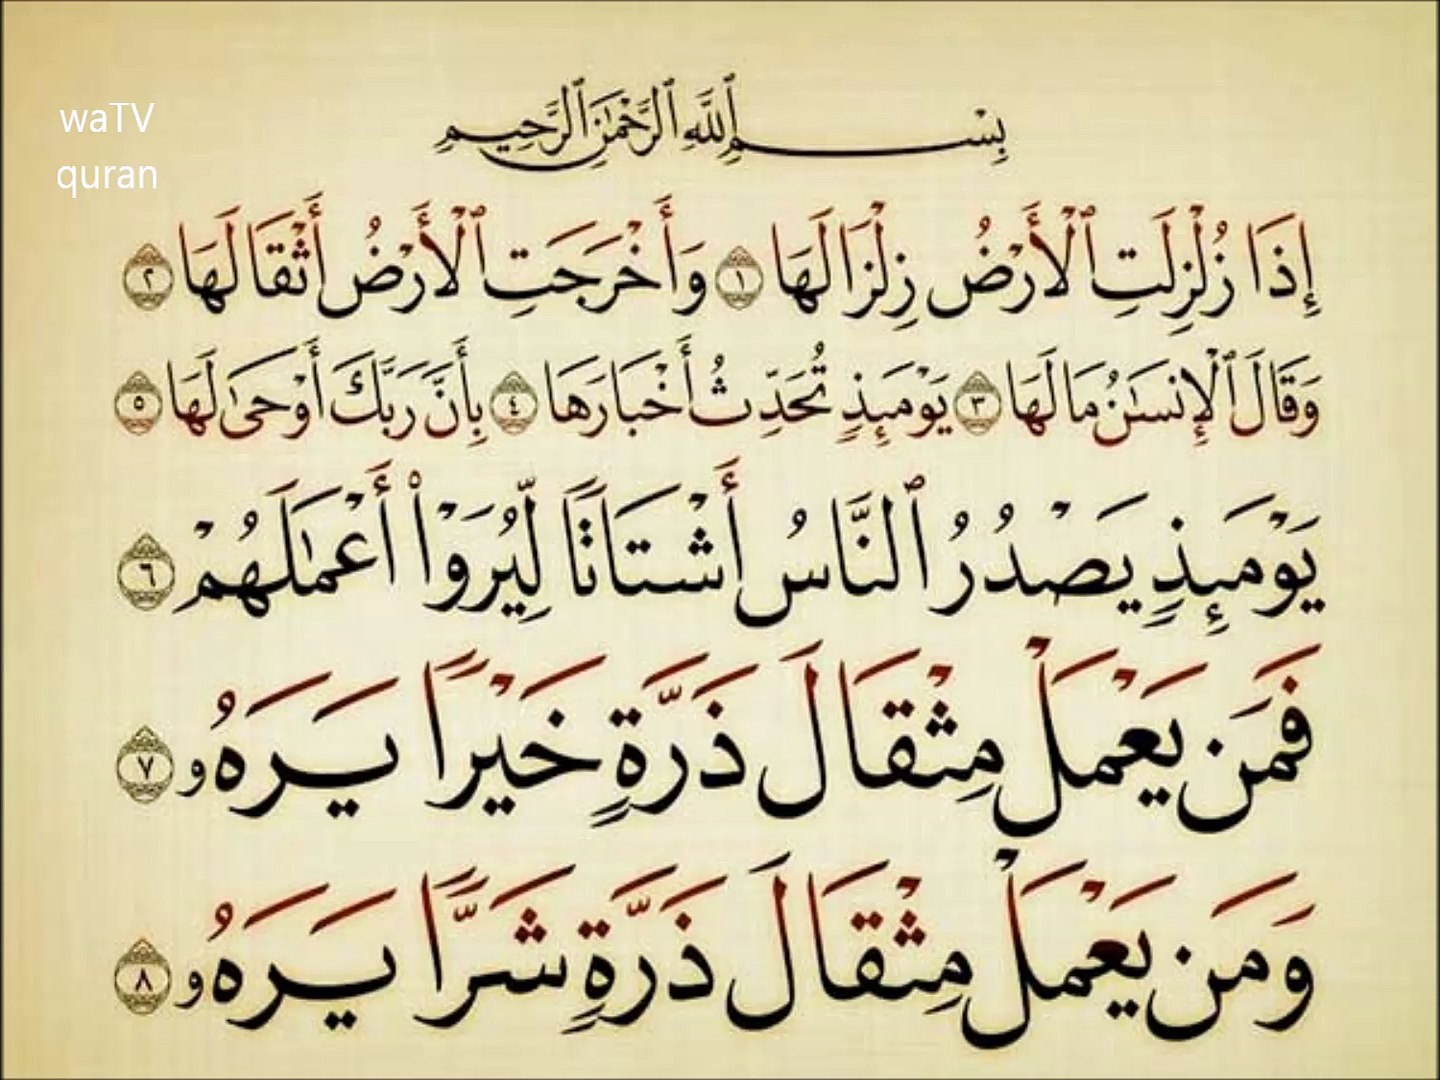 waTV
quran
بِسْمِ ٱللَّهِ ٱلرَّحْمَٰنِ ٱلرَّحِيمِ
إِذَا زُلْزِلَتِ ٱلْأَرْضُ زِلْزَالَهَا ١ وَأَخْرَجَتِ ٱلْأَرْضُ أَثْقَالَهَا ٢
وَقَالَ ٱلْإِنسَٰنُ مَا لَهَا ٣ يَوْمَئِذٍ تُحَدِّثُ أَخْبَارَهَا ٤ بِأَنَّ رَبَّكَ أَوْحَىٰ لَهَا ٥
يَوْمَئِذٍ يَصْدُرُ ٱلنَّاسُ أَشْتَاتًا لِّيُرَوْا۟ أَعْمَٰلَهُمْ ٦
فَمَن يَعْمَلْ مِثْقَالَ ذَرَّةٍ خَيْرًا يَرَهُۥ ٧
وَمَن يَعْمَلْ مِثْقَالَ ذَرَّةٍ شَرًّا يَرَهُۥ ٨